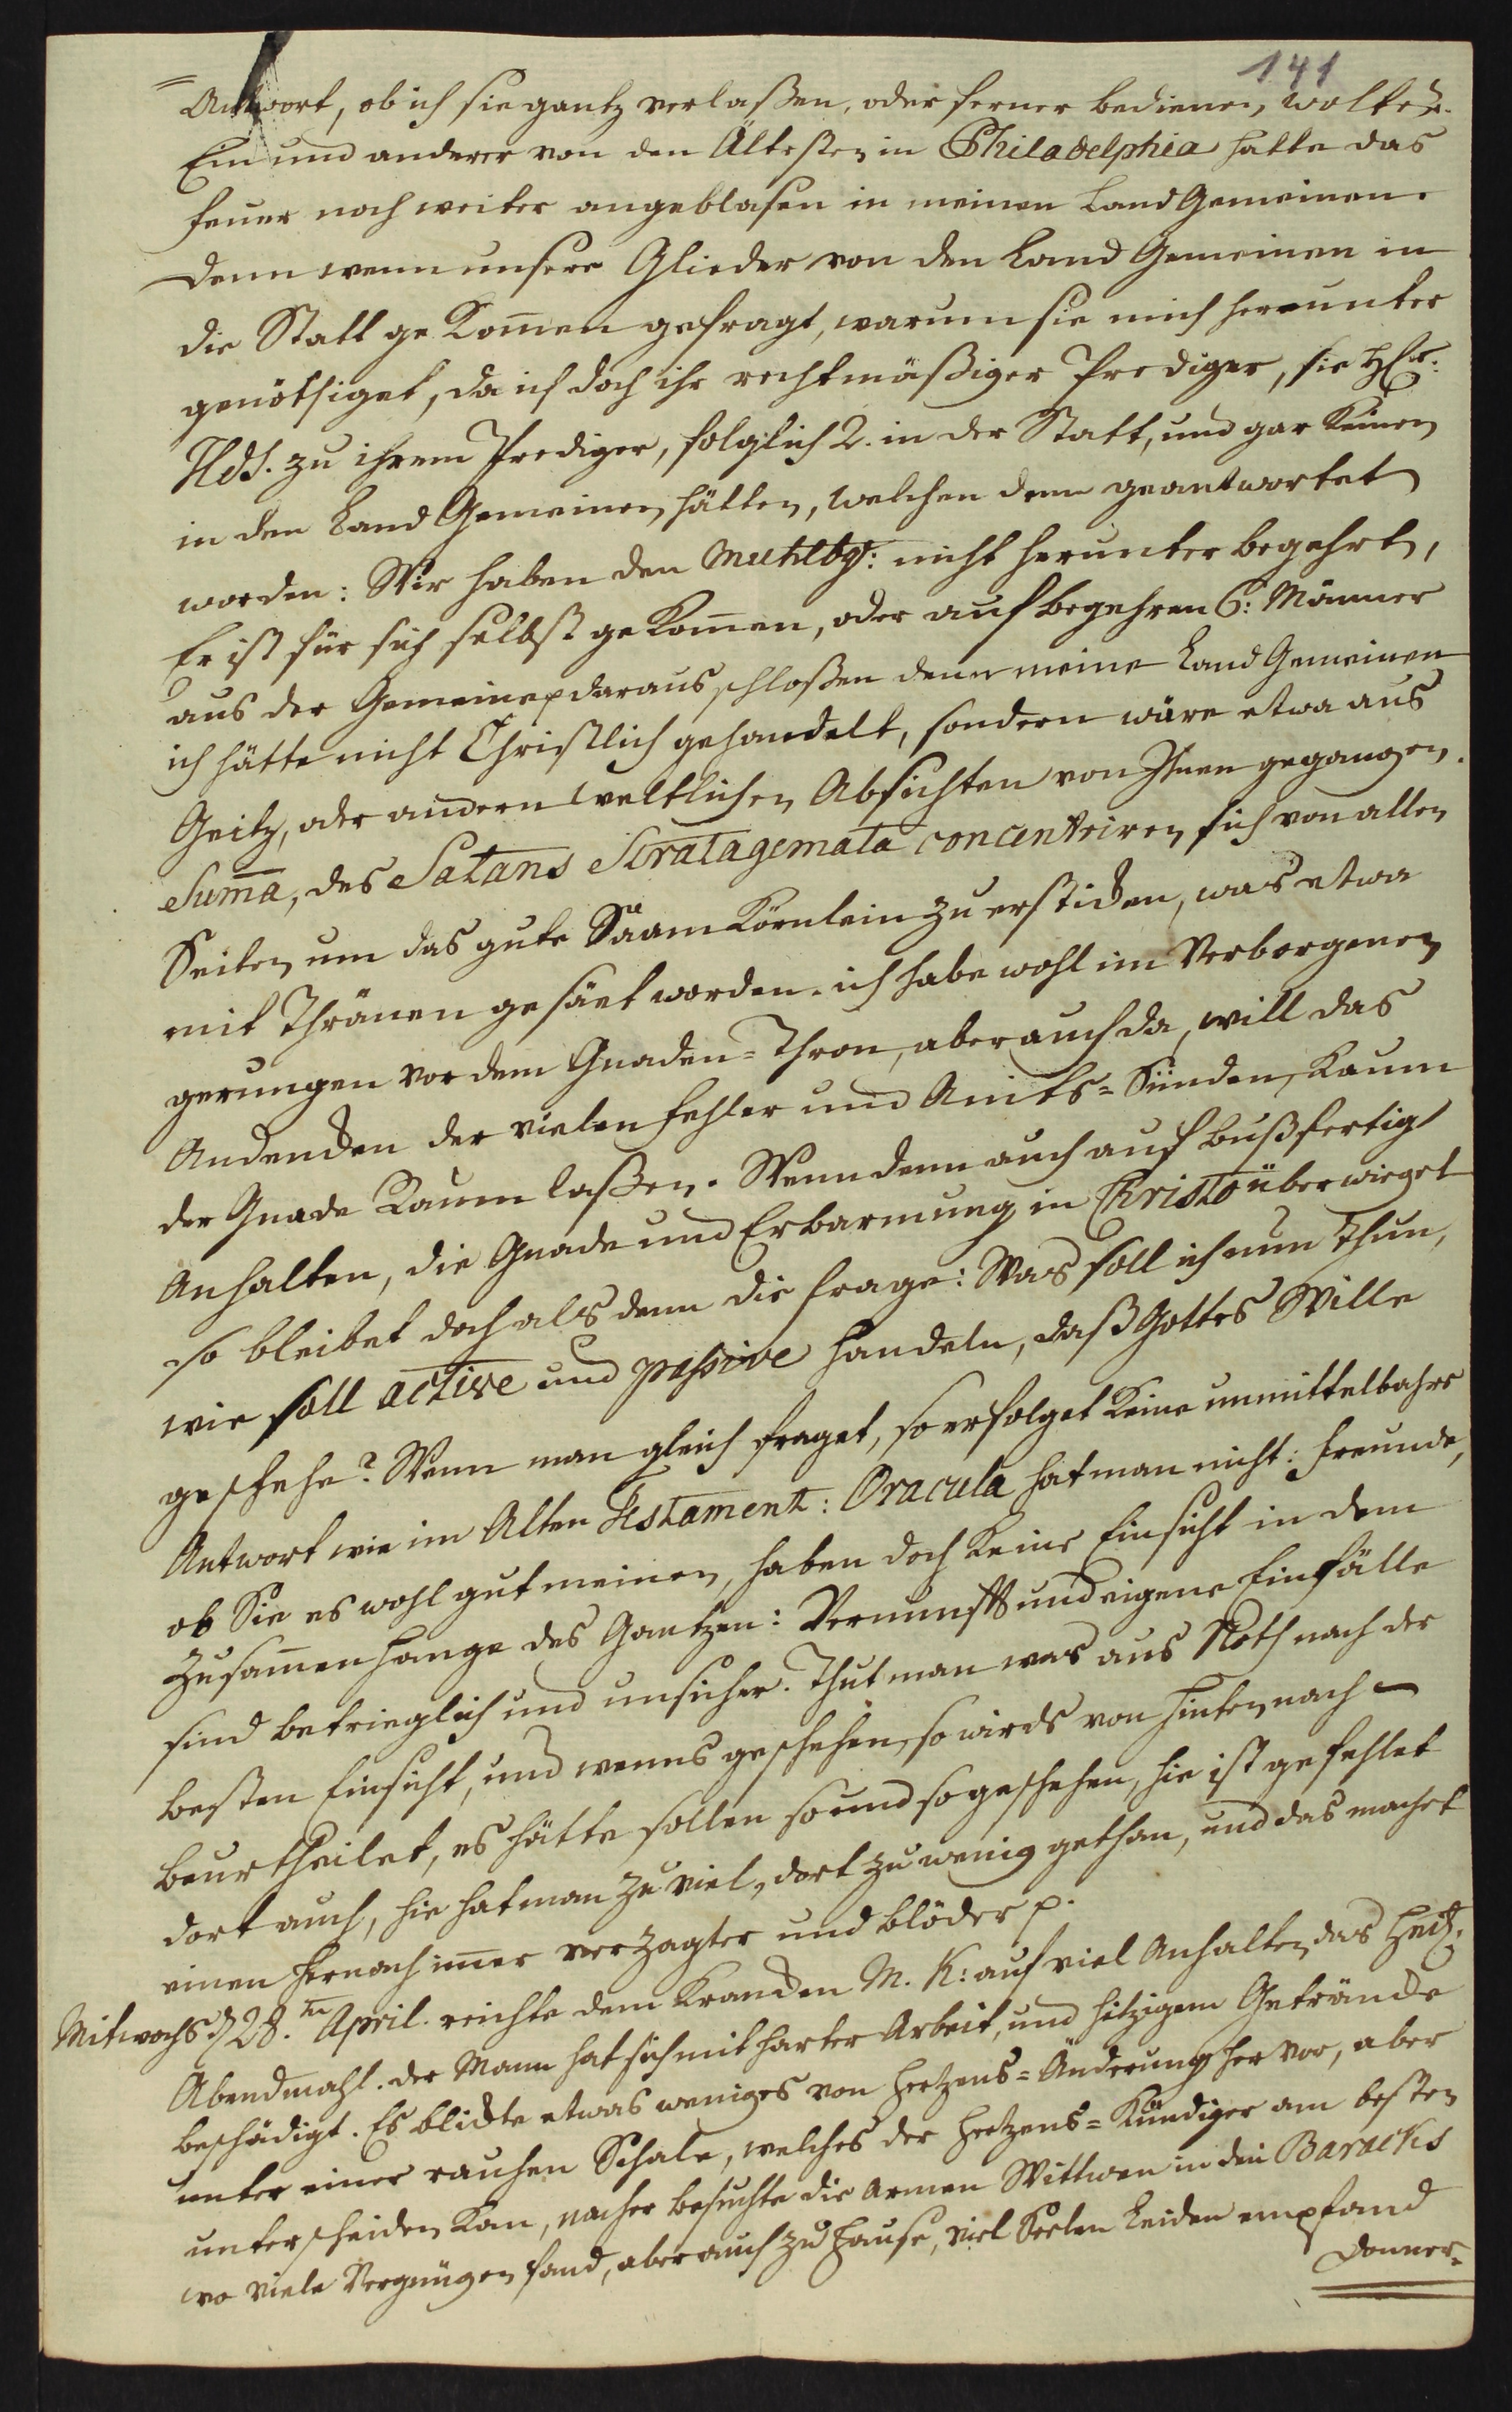 141
Antwort, ob ich sie gantz verlaßen, oder ferner bedienen wolte.
Ein und anderer von den Ältesten in Philadelphia hatte das
feuer noch weiter angeblasen in meinen Land Gemeinen.
denn wenn unsere Glieder von den Land Gemeinen in
die Statt gekom̅en gefragt, warum sie mich herunter
genöthiget, da ich doch ihr rechtmäßiger Prediger, sie H
Hds. zu ihrem Prediger, folglich 2. in der Statt, und gar keinen
in den Land Gemeinen hätten, welchen denn geantwortet
worden: Wir haben den Muhlbg: nicht herunter begehrt,
Er ist für sich selbst gekom̅en, oder auf begehren 6: Männer
aus der Gemeine p daraus schloßen denn meine Land Gemeinen
ich hätte nicht Christlich gehandelt, sondern wäre etwa aus
Geitz, oder andern weltlichen Absichten von Ihnen gegangen.
Sum̅a, des Satans Stratagemata concentriren sich von allen
Seiten um das gute Säamkörnlein zu ersticken, was etwa
mit Thränen gesäet worden. ich habe wohl im Verborgenen
gerungen vor dem Gnaden=Thron, aber auch da, will das
Andencken der vielen fehler und Amts=Sünden, kaum
der Gnade Raum laßen. Wenn denn auch auf bußfertig
Anhalten, die Gnade und Erbarmung in Christo überwieget
so bleibet doch als denn die frage: Was soll ich nun thun,
wie soll active und passive handeln, daß Gottes Wille
geschehe? Wenn man gleich fraget, so erfolget keine unmittelbahre
Antwort wie im Alten Testament: Oracula hat man nicht: freunde,
ob Sie es wohl gut meinen, haben doch keine Einsicht in dem
Zusam̅enhange des Gantzen: Vernunft und eigene Einfälle
sind betrieglich und unsicher. Thut man was aus Noth nach der
besten Einsicht, und wenns geschehen, so wirds von hinten nach
beurtheilet, es hätte sollen so und so geschehen, hie ist gefehlet
dort auch, hie hat man zu viel, dort zu wenig gethan, und das machet
einen hernach im̅er verzagter und blöder p.
Mitwochs d 28.ten April. reichte dem Krancken M. K: auf viel Anhalten das Heil:
Abendmahl. der Mann hat sich mit harter Arbeit, und hitzigem Geträncke
beschädigt. Es blickte etwas weniges von Hertzens=Änderung hervor, aber
unter einer rauhen Schale, welches der Hertzens=Kündiger am besten
unterscheiden kan, nacher besuchte die armen Wittwen in den Baracks
wo viele Vergnügen fand, aber auch zu Hause, viel Seelen Leiden empfand
Donner=